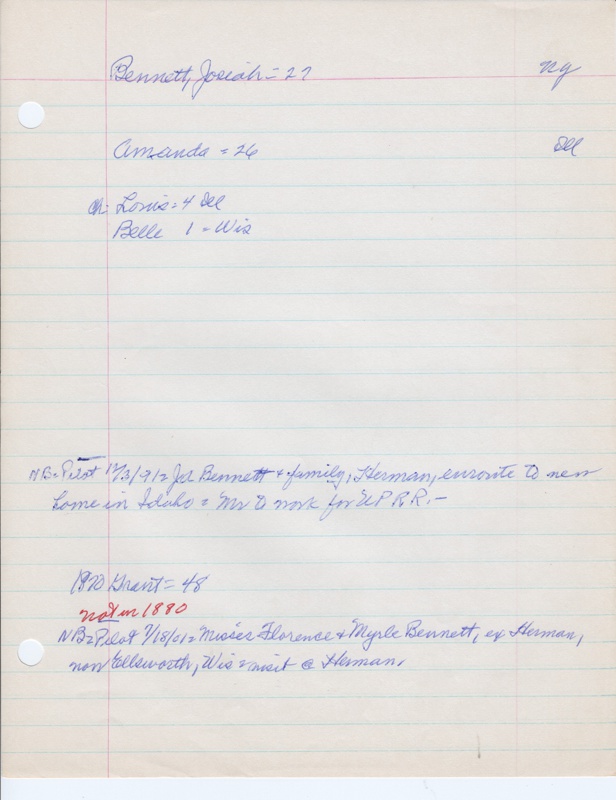 Bennett, Josiah = 27 Ny
Amanda = 26 Ill
Ch: Louis = 4 Ill
Belle 1 = Wis
NB = Pilot 12/3/91 = Jos Bennett & family, Herman, enroute to new
home in Idaho = Mr to work for UPRR. -
1870 Grant = 48
not in 1880
NB = Pilot 7/18/01 = Misses Florence & Myrle Bennett, ex Herman,
now Ellsworth, Wis = visit @ Herman.